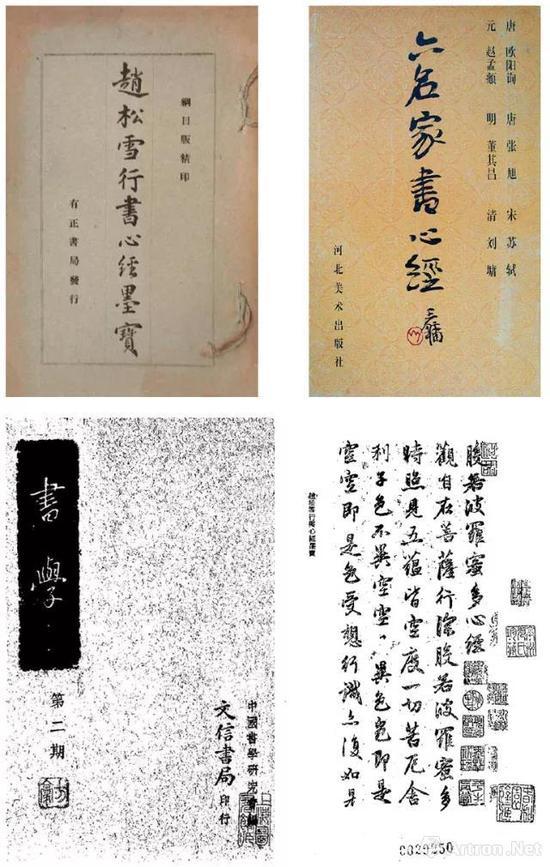 網目版精印
趙松雪行書心經墨寶
有正書局發行
唐 欧阳询 唐 张旭 宋 苏轼
元 赵孟頫 明 董其昌 清 刘墉
六名家書心經
河北美术出版社
書學
第二期
中國書學研究會編
文信書局印行
般若波羅蜜多心經
觀自在菩薩行深般若波羅蜜多
時照見五蘊皆空度一切苦厄舍
利子色不異空空、異色色即是
空空即是色受想行識亦復如是
趙松雪行書心經墨寶
Artron.Net